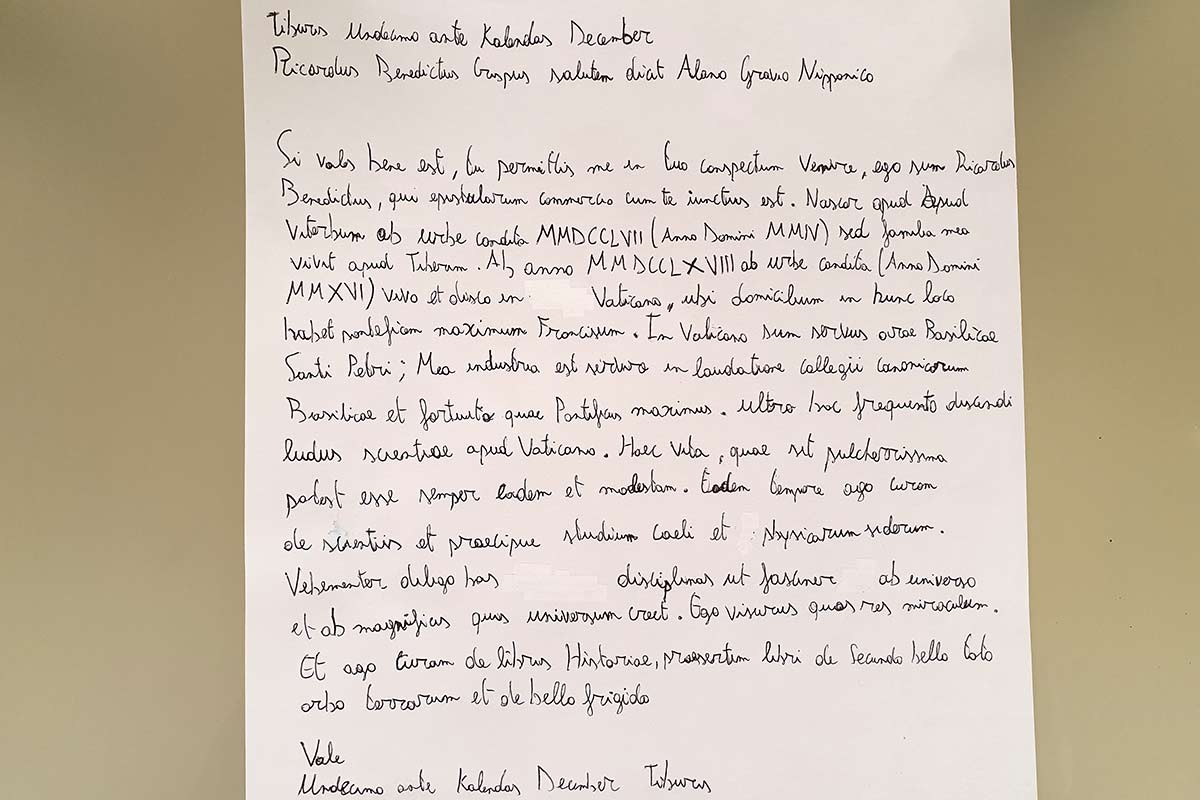 Tiburis Undecimo ante Kalendas December
Ricardus Benedictus Crispus salutem dicit Alano Gravio Nipponico
Si vales bene est, tu permittis me in tuo conspectum venire, ego sum Ricardus
Benedictus, qui epistolarum commercio cum te iunctus est. Nascor apud Apud
Viterbum ab urbe condita MMDCCLVII (Anno Domini MMIV) sed familia mea
vivit apud Tiberim. Ab anno MMDCCLXVIII ab urbe condita (Anno Domini
MMXVI) vivo et disco in Vaticano, ubi domicilium in hunc loco
habet ponteficem maximum Franciscum. In Vaticano sum servus arae Basilicae
Santi Petri; Mea industria est servire in laudatione collegii canonicorum
Basilicae et fortuito quae Pontificis maximus. Ultro hoc frequento discendi
ludus scientiae apud Vaticano. Haec vita, quae sit pulcherrissima
potest esse semper eadem et modestam. Eodem tempore ago curam
de scientiis et praecipue studium caeli et physicarum siderum.
Vehementer diligo has disciplinas ut fasciner ab universo
et ab magnificis quis universum creet. Ego visurus quas res miraculum.
Et ago curam de libris Historiae, praesertim libri de Secundo bello toto
orbo terrarum et de bello frigido
Vale
Undecimo ante Kalendas December Tiburis